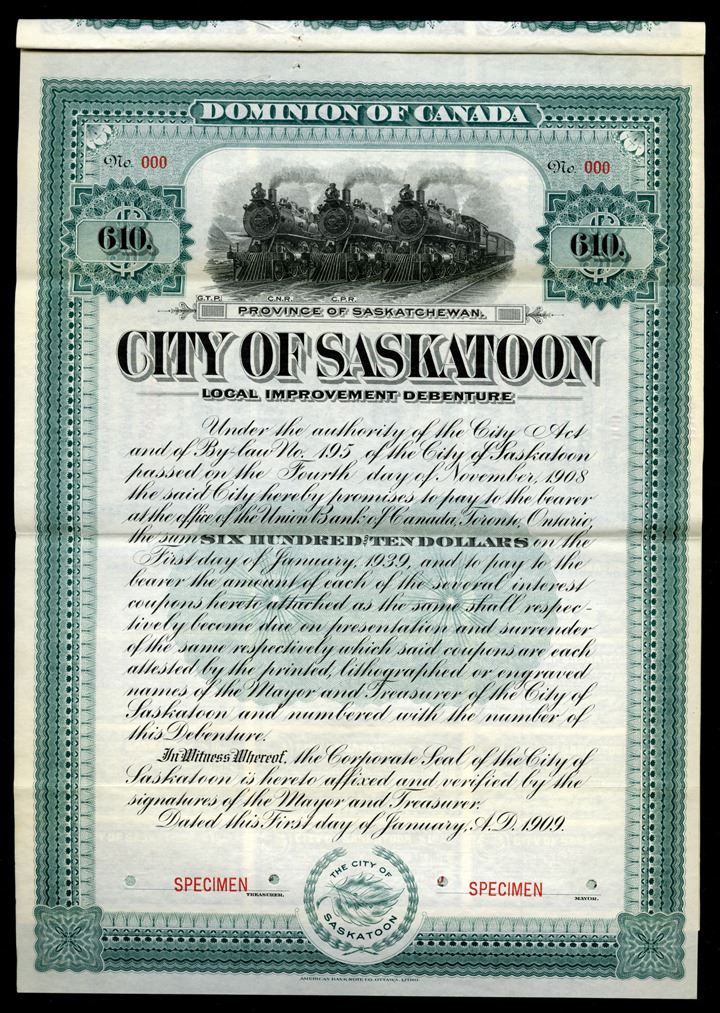 DOMINION OF CANADA
No. 000
No. 000
$610.
$610.
G.T.P. C.N.R. C.P.R.
PROVINCE OF SASKATCHEWAN.
CITY OF SASKATOON
LOCAL IMPROVEMENT DEBENTURE
Under the authority of the City Act
and of By-law No. 195 of the City of Saskatoon
passed on the Fourth day of November, 1908
the said City hereby promises to pay to the bearer
at the office of the Union Bank of Canada, Toronto, Ontario,
the sum SIX HUNDRED AND TEN DOLLARS on the
First day of January, 1939, and to pay to the
bearer the amount of each of the several interest
coupons hereto attached as the same shall respec-
tively become due on presentation and surrender
of the same respectively which said coupons are each
attested by the printed, lithographed or engraved
names of the Mayor and Treasurer of the City of
Saskatoon and numbered with the number of
this Debenture.
In Witness Whereof, the Corporate Seal of the City of
Saskatoon is hereto affixed and verified by the
signatures of the Mayor and Treasurer.
Dated this First day of January, A.D. 1909.
SPECIMEN
TREASURER.
THE CITY OF
SASKATOON
SPECIMEN
MAYOR.
AMERICAN BANK NOTE CO. OTTAWA. LITHO.